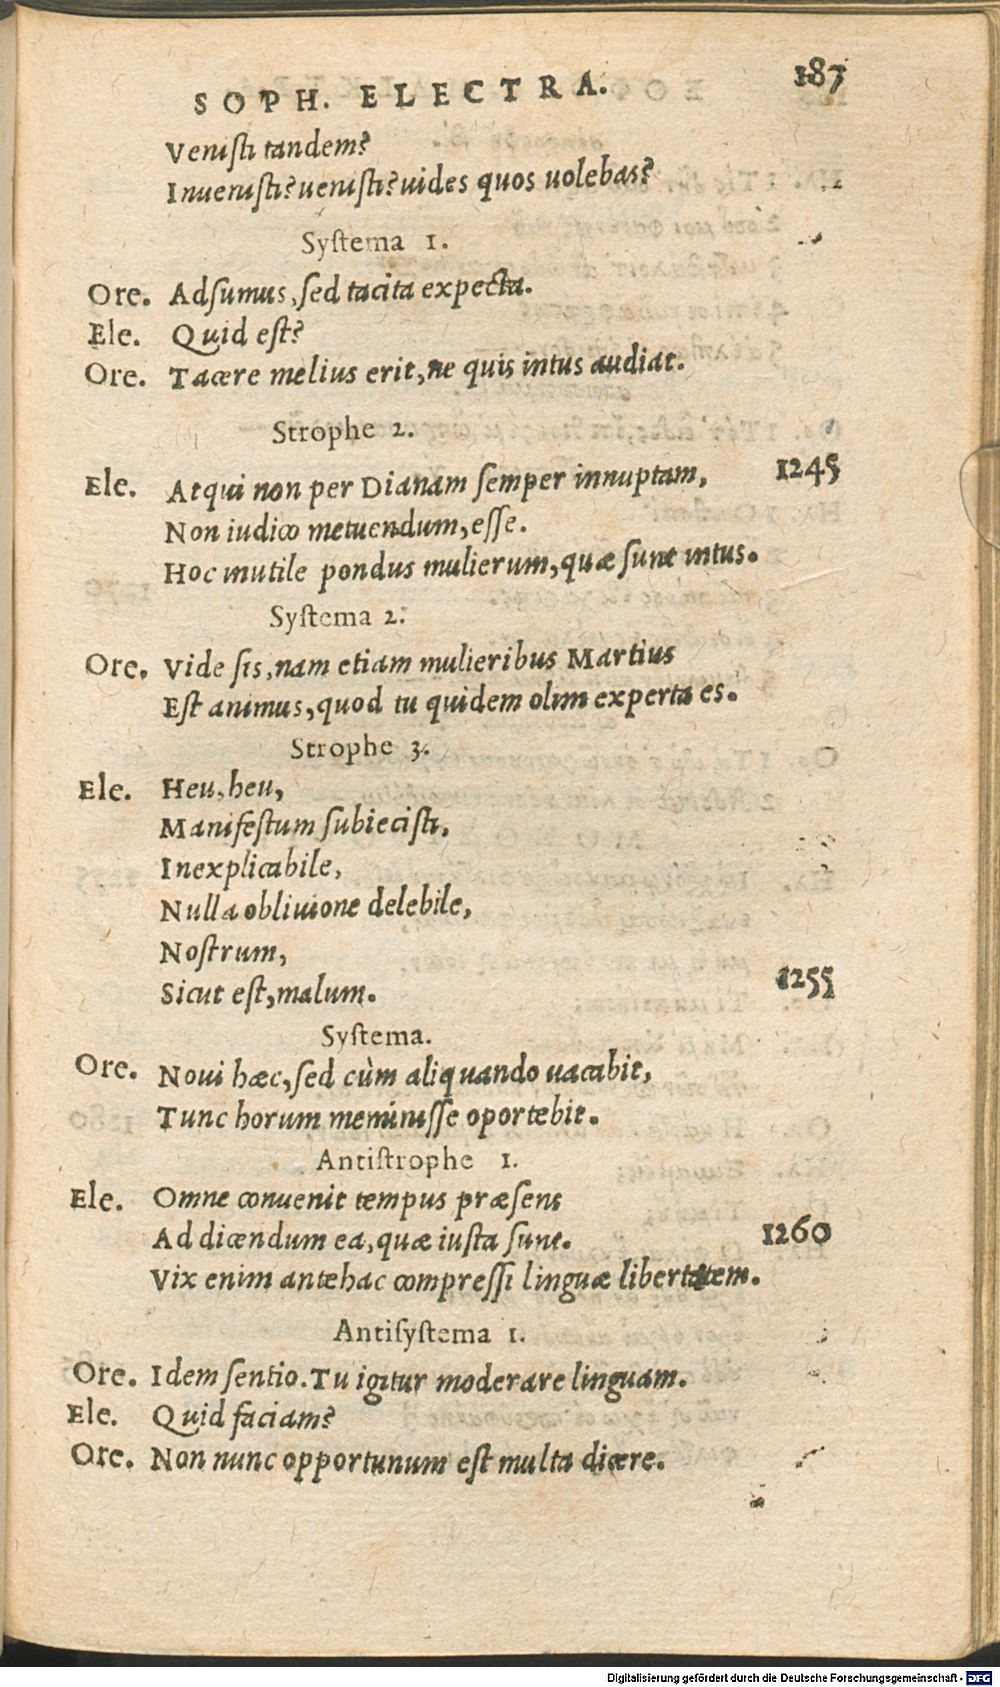 SOPH. ELECTRA. 187
Venisti tandem?
Invenisti? uenisti? uides quos uolebas?
Systema 1.
Ore. Adsumus, sed tacita expecta.
Ele. Quid est?
Ore. Tacere melius erit, ne quis intus audiat.
Strophe 2.
Ele. Atqui non per Dianam semper innuptam, 1245
Non iudico metuendum, esse.
Hoc inutile pondus mulierum, quæ sunt intus.
Systema 2.
Ore. Vide sis, nam etiam mulieribus Martius
Est animus, quod tu quidem olim experta es.
Strophe 3.
Ele. Heu, heu,
Manifestum subiecisti,
Inexplicabile,
Nulla obliuione delebile,
Nostrum,
Sicut est, malum. 1255
Systema.
Ore. Noui hæc, sed cùm aliquando uacabit,
Tunc horum meminisse oportebit.
Antistrophe 1.
Ele. Omne conuenit tempus præsens
Ad dicendum ea, quæ iusta sunt. 1260
Vix enim antehac compressi linguæ libertatem.
Antisystema 1.
Ore. Idem sentio. Tu igitur moderare linguam.
Ele. Quid faciam?
Ore. Non nunc opportunum est multa dicere.
Digitalisierung gefördert durch die Deutsche Forschungsgemeinschaft - DFG